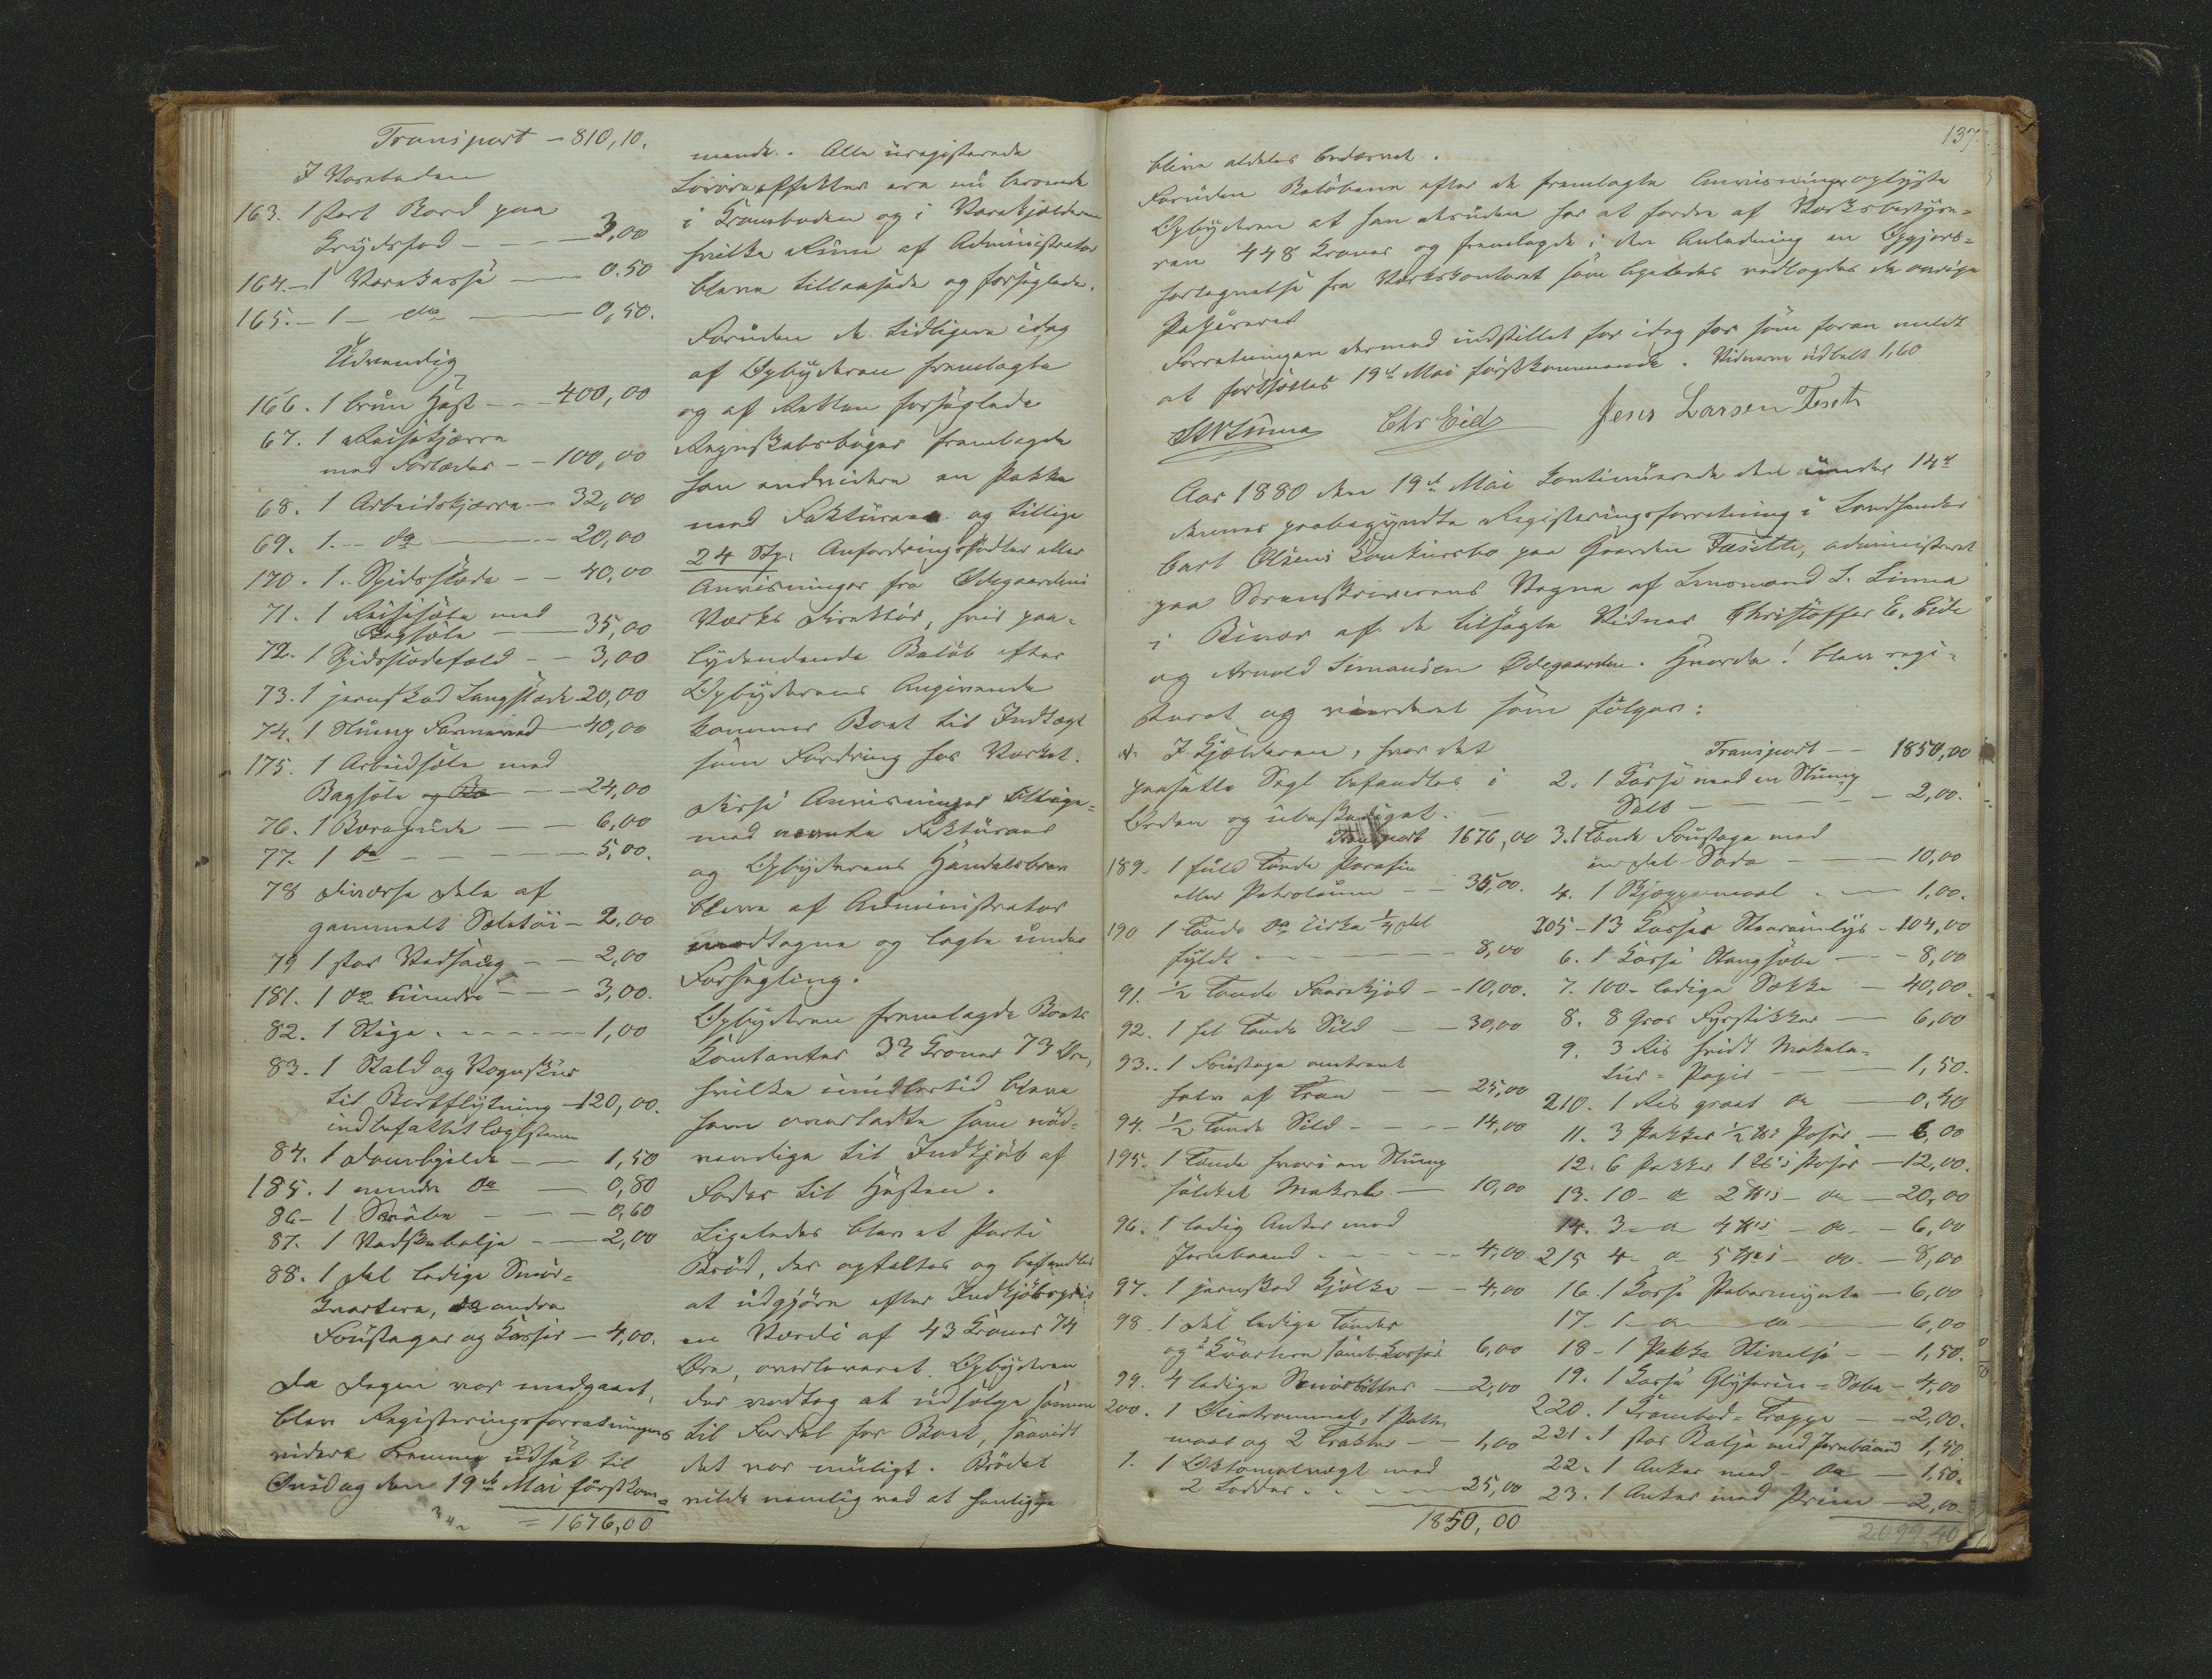 Transport – 810,10.
I Vareboden
163. 1 stort Bord paa
Krydsfod – – – 3,00
164. – 1 Varekasse – 0.50
165. – 1 – do – 0,50.
Udvendig
166. 1 brun Hest – – 400,00
67. 1 Reisekjærre
med Forlæder – – 100,00
68. 1 Arbeidskjærre – 32,00
69. 1 – – do – 20,00
170. 1. Spidsslæde – – 40,00
71. 1 Reisesæle med
Bagsæle – – 35,00
72. 1 Spidsslædefæld – – 3,00
73. 1 jernskod Langslæde 20,00
74. 1 Slump Favneved – 40,00
175. 1 Arbeidsæle med
Bagsæle – – 24,00
76. 1 Bærepude – – 6,00
77. 1 do – – – 5,00.
78 diverse dele af
gammelt Sæletøi – 2,00
79 1 stor Vedsaug – – 2,00
181. 1 do mindre – – – 3,00.
82. 1 Stige – – – – 1,00
83. 1 Stald og Vognskur
til Bortflytning – 120,00.
indbefattet Lægstenene
84. 1 Dombjelde – – 1,50
185. 1 mindre do – 0,80
86 – 1 – – – 0,60
87. 1 Vadskebalje – – 2,00
88. 1 del ledige Smør=
kvartere, andre
Foustager og Kasser – 4,00.
Da dagen var medgaaet,
blev Registreringsforretningens
videre Fremme udsat til
Onsdag den 19de Mai førstkom=
= 1676,00
mende. Alle uregistrerede
Løsøreeffekter ere nu beroende
i Kramboden og i Varekjælderen
hvilke Rum af Administrator
bleve tillaasede og forseglede.
Foruden de tidligere idag
af Opbyderen fremlagte
og af Retten forseglede
Regnskabsbøger fremlagde
han endvidere en Pakke
med Fakturaer og tillige
24 Stp. Anfordringssedler eller
Anvisninger fra Ødegaardens
Værks Direktør, hvis paa=
lydendende Beløb efter
Opbyderens Angivende
kommer Boet til Indtægt
som Fordring hos Værket.
Disse Anvisninger tillige=
med nævnte Fakturaer
og Opbyderens Handelsbrev
bleve af Administrator
modtagne og lagte under
Forsegling.
Opbyderen fremlagde Boets
Kontanter 33 Kroner 73 Øre,
hvilke imidlertid bleve
ham overladte som nød=
vendige til Indkjøb af
Foder til Hesten.
Ligeledes blev et Parti
Brød, der optaltes og befandtes
at udgjøre efter Indkjøbspris
en Værdi af 43 Kroner 74
Øre, overleveret Opbyderen
der vedtog at udsælge samme
til Fordel for Boet, saavidt
det var muligt. Brødet
vilde nemlig ved at henligge
137.
blive aldeles bedærvet.
Foruden Beløbene efter de fremlagte Anvisninger oplyste
Opbyderen at han desuden har at fordre af Værksbestyre=
ren 448 Kroner og fremlagde i den Anledning en Opgjørs=
fortegnelse fra Værkskontoret som ligeledes vedlagdes de øvrige
Papirer
Forretningen dermed indstillet for idag for som foran meldt
at fortsættes 19de Mai førstkommende. Vidnerne udbetalt 1,60
Chr Eid Jens Larsen Feset
Aar 1880 den 19de Mai kontinuerede den under 14de
dennes paabegyndte Registreringsforretning i Landhandler
Carl Olsens Konkursbo paa Gaarden Fæsette, administreret
paa Sorenskriverens Vegne af Lensmand S. Linna
i Biværelse af de tilsagte Vidner Christoffer E. Eide
og Arnold Simansen Ødegaarden. Hvorda! blev regi=
streret og vurderet som følger:
I Kjælderen, hvor det
paasatte Segl befandtes i
Orden og ubeskadiget. –
Transport 1676,00
189. 1 fuld Tønde Parafin
eller Petroleum – – 35,00.
190 1 Tønde do cirka 1/4 del
fyldt – – – – 8,00
91. 1/2 Tønde Faarekjød – – 10,00.
92. 1 hel Tønde Sild – – 30,00
93. . 1 Foustage omtrent
halv af Tran – – 25,00
94. 1/2 Tønde Sild – – – 14,00
195. 1 Tønde hvori en Slump
saltet Makrel – 10,00
96. 1 ledig Anker med
Jernbaand – – – – 4,00
97. 1 jernskod Kjælke – – 4,00
98 1 del ledige Tønder
og Kvartere samt Kasser 6,00
99. 4 ledige Smørbøtter – 2,00
200. 1 1 Potte
maal og 2 Trakter – – 1,00
1. 1 Bismervægt med
2 Lodder – – – 25,00
1850,00
Transport – – 1850,00
2. 1 Kasse med en Slump
Salt – – – – – 2,00.
3. 1 Tønde Foustage med
en del Soda – – – 10,00
4. 1 Skjæppemaal – – 1,00.
205 – 13 Kasser Stearinlys – 104,00
6. 1 Kasse Stangsæbe – – – 8,00
7. 100 – ledige Sække – 40,00.
8. 8 Gros Fyrstikker – 6,00
9. 3 Ris hvidt Makula=
tur = Papir – – 1,50.
210. 1 Ris graat do – 0,40
11. 3 Pakker 1/2 ℔s Poser – 6,00
12. 6 Pakker 1 ℔s Poser – 12,00.
13. 10 – do 2 ℔s – do – 20,00
14. 3 – do 4 ℔s – do – 6,00
215 4 – do 5 ℔s – do – 8,00
16. 1 Kasse Pebermynte – 6,00
17 – 1 – do – do – 6,00
18 – 1 Pakke Stivelse – – 1,50.
19. 1 Kasse Glyserin = Sæbe – 4,00
220. 1 Krambod = Trappe – – 2,00.
221. 1 stor Balje med Jernbaand 1,50
22. 1 Anker med – do – 1,50.
23. 1 Anker med Prim – 2,00
2099,40